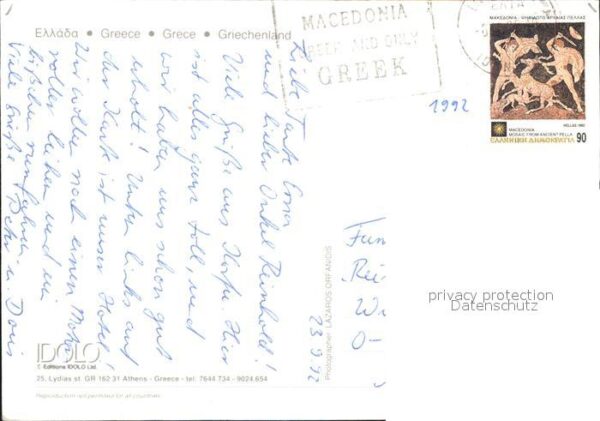 Ελλάδα • Greece • Grèce • Griechenland
MACEDONIA
GREEK AND ONLY
GREEK
ΜΑΚΕΔΟΝΙΑ - ΨΗΦΙΔΩΤΟ ΑΡΧΑΙΑΣ ΠΕΛΛΑΣ
HELLAS 1992
MACEDONIA
MOSAIC FROM ANCIENT PELLA
ΕΛΛΗΝΙΚΗ ΔΗΜΟΚΡΑΤΙΑ 90
1992
Liebe Tante Erna
und lieber Onkel Reinhold!
Viele Grüße aus Korfu. Hier
ist alles ganz toll, und
wir haben uns schon gut
erholt! Unten links auf
der Karte ist unser Hotel!
Wir wollen noch einen Motor-
roller leihen und ein
bißchen rumfahren.
Viele Grüße u. Doris
23.9.92
Photographer LAZAROS ORFANIDIS
Rei
O-
privacy protection
Datenschutz
IDOLO
© Editions IDOLO Ltd.
25, Lydias st. GR 162 31 Athens - Greece - tel. 7644 734 - 9024 654
Reproduction not permitted for all countries